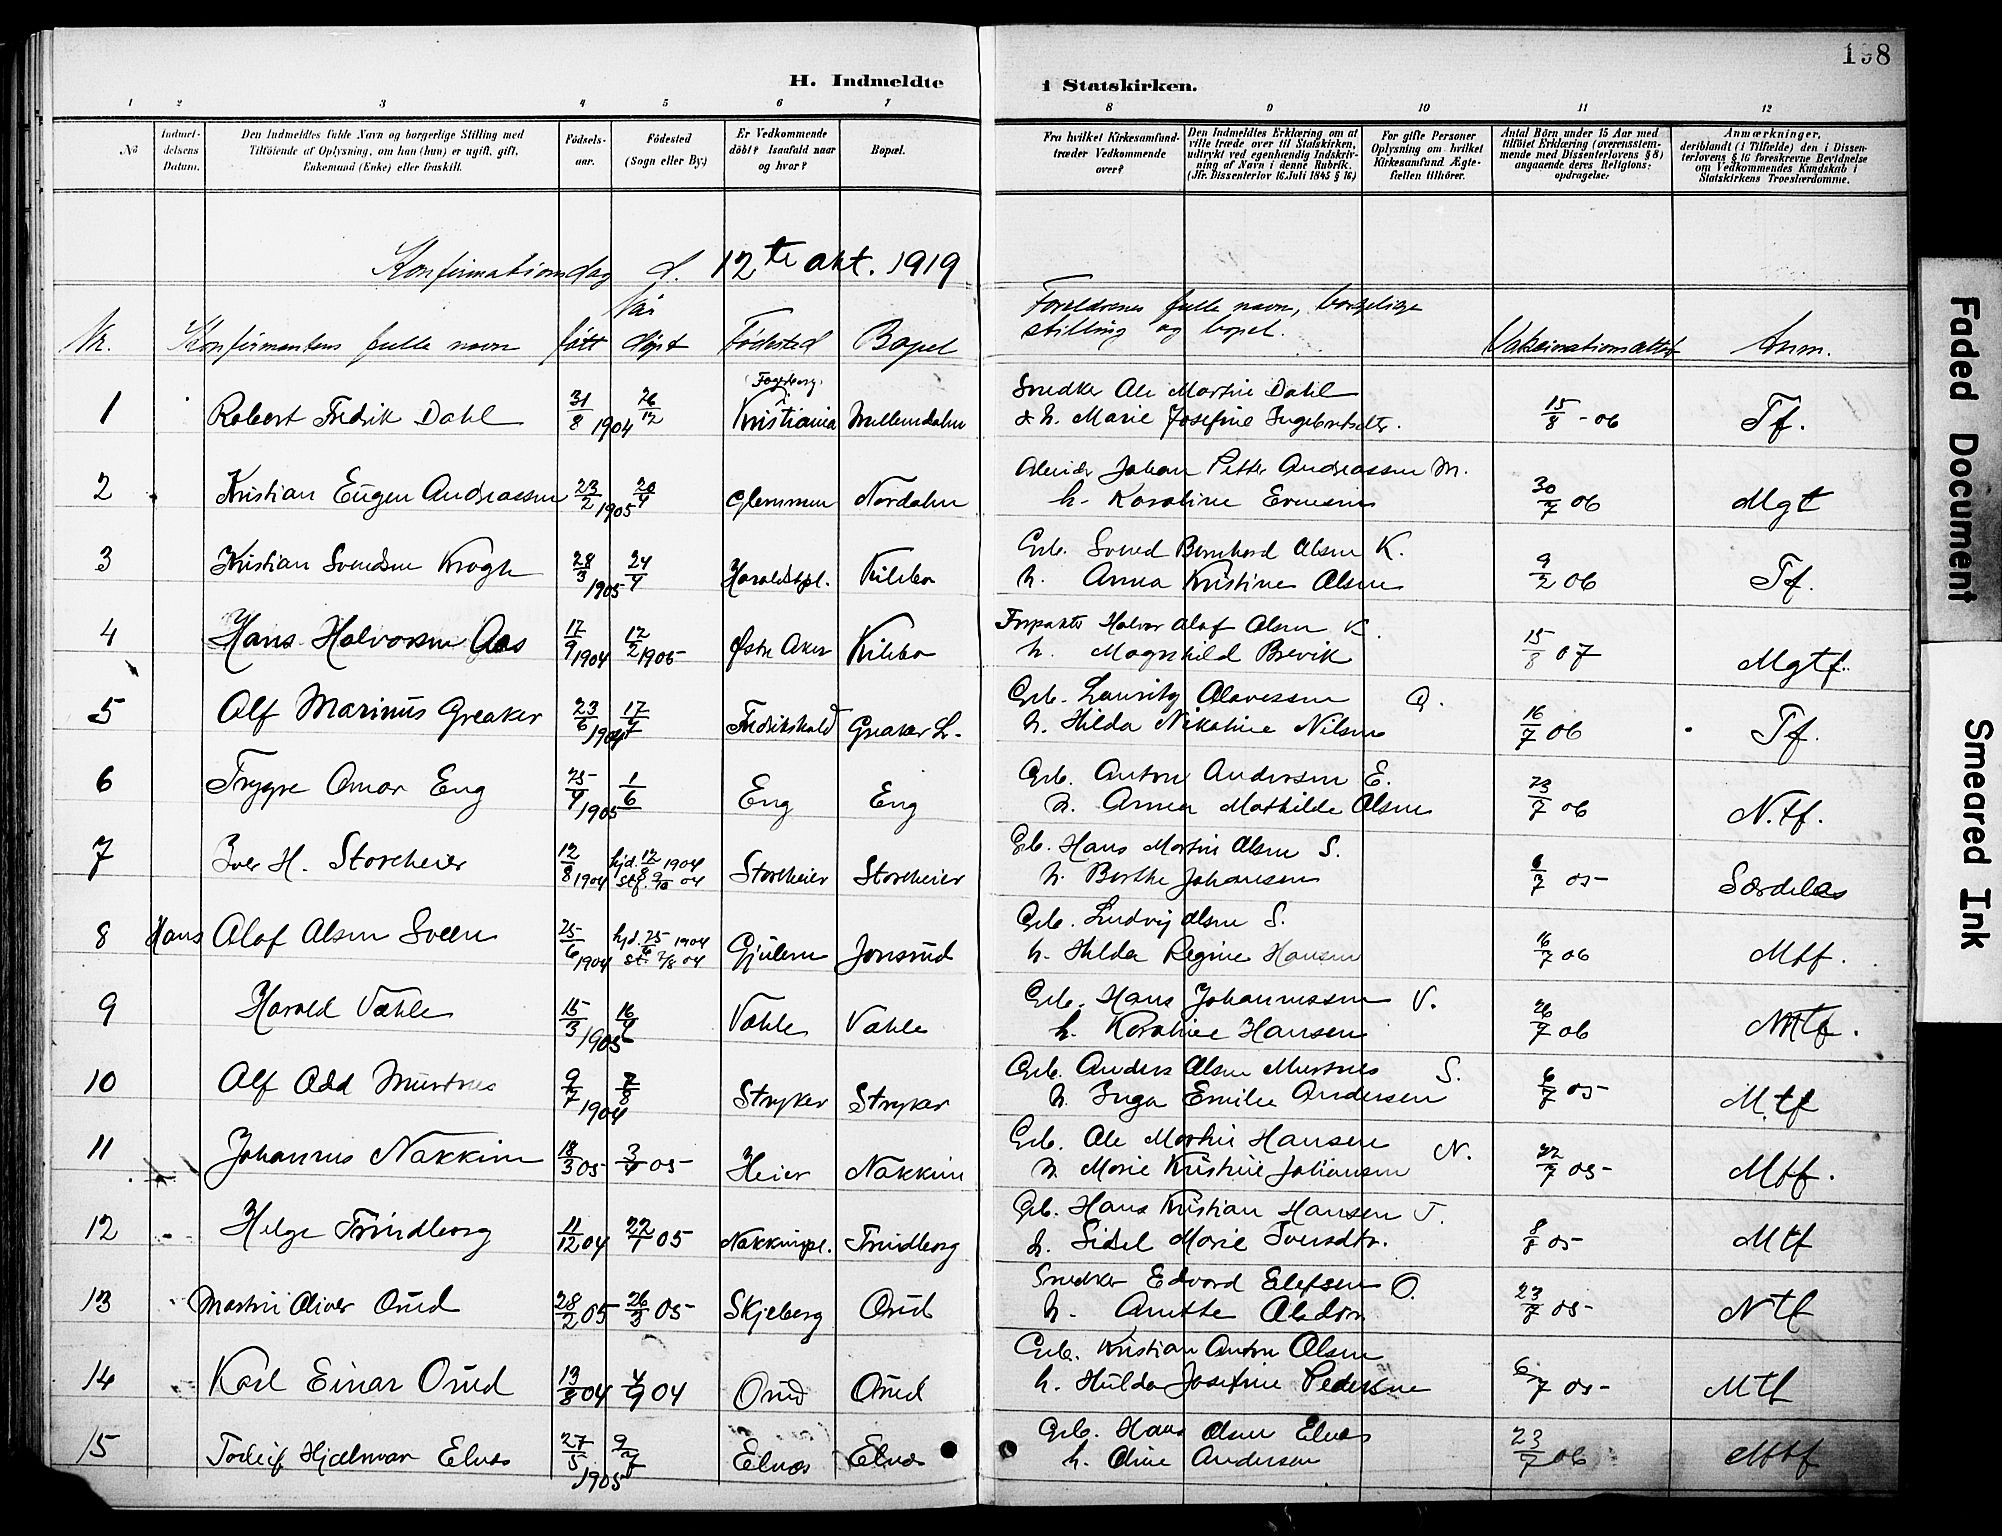 198
H. Indmeldte i Statskirken.
1 2 3 4 5 6 7 8 9 10 11 12
No
Indmel-
delsens
Datum.
Den Indmeldtes fulde Navn og borgerlige Stilling med
Tilföiende af Oplysning, om han (hun) er ugift, gift,
Enkemand (Enke) eller fraskilt.
Födsels-
aar.
Födested
(Sogn eller By.)
Er Vedkommende
döbt? Isaafald naar
og hvor?
Bopæl.
Fra hvilket Kirkesamfund
træder Vedkommende
over?
Den Indmeldtes Erklæring om at
ville træde over til Statskirken,
udtrykt ved egenhændig Indskriv-
ning af Navn i denne Rubrik.
(Jfr. Dissenterlov 16. Juli 1845 § 16)
For gifte Personer
Oplysning om hvilket
Kirkesamfund Ægte-
fællen tilhörer.
Antal Börn under 15 Aar med
tilföiet Erklæring (overensstem-
mende med Dissenterlovens § 8)
angaaende deres Religions-
opdragelse.
Anmærkninger,
deriblandt (i Tilfælde) den i Dissen-
terlovens § 16 foreskrevne Bevidnelse
om Vedkommendes Kundskab i
Statskirkens Troeslærdomme.
Konfirmationsdag d. 12te okt. 1919
Nr. Konfirmantens fulle navn født Når døpt Fødested Bopel Foreldrenes fulle navn, borgelige
stilling og bopel. Vaksinationsattest Anm.
1 Robert Fredrik Dahl 31/8 1904 26/12 Fagerborg, Kristiania Mellemdalen Snedker Ole Martin Dahl
& h. Marie Josefine Ingebretsdtr. 15/8 - 06 Tf.
2 Kristian Eugen Andreassen 23/2 1905 20/4 Glemmen Nordalen Johan Petter Andreassen M.
h. Karoline 30/7 06 Mgt
3 Kristian Svendsen Krogh 28/3 1905 24/4 Haraldstpl. Kilebo Grb. Svend Bernhard Olsen K.
h. Anna Kristine Olsen 9/2 06 Tf.
4 Hans Halvorsen Aas 17/9 1904 12/2 1905 Østre Aker Kilebo Forpakter Halvor Olaf Olsen K.
h. Magnhild Brevik 15/8 07 Mgtf.
5 Alf Marinus Greaker 23/6 1904 17/7 Fredrikshald Greaker L. Grb. Lauritz Olavessen G.
h. Hilda Nikoline Nilsen 16/7 06 Tf.
6 Trygve Omar Eng 25/4 1905 1/6 Eng Eng Grb. Anton Andersen E.
h. Anna Mathilde Olsen 23/7 06 N.tf.
7 Iver H. Storeheier 12/8 1904 hjd. 12/8 1904
stf. 9/10 04 Storeheier Storeheier Grb. Hans Martin Olsen S.
h. Berthe Johansen 6/7 05 Særdeles
8 Hans Olaf Olsen Sveen 25/6 1904 hjd. 25/6 1904
st. 7/8 04 Gjulem Jonsrud Grb. Ludvig Olsen S.
h. Hilda Regine Hansen 16/7 06 Mtf.
9 Harald Vahle 15/3 1905 16/4 Vahle Vahle Grb. Hans Johannessen V.
h. Karoline Hansen 26/7 06 Mtf.
10 Alf Odd Murtnes 9/7 1904 7/8 Stryker Stryker Grb. Anders Olsen Murtnes S.
h. Inga Emilie Andersen 6/7 05 M.tf
11 Johannes Nakkim 18/3 05 3/4 05 Heier Nakkim Grb. Ole Martin Hansen N.
h. Marie Kristine Johansen 22/7 05 Mtf.
12 Helge Trindborg 11/12 04 22/1 05 Nakkimpl. Trindborg Grb. Hans Kristian Hansen T.
h. Sidel Marie Iversdtr. 8/8 05 Mtf
13 Martin Oliver Orud 28/2 05 26/3 05 Skjeberg Orud Snedker Edvard Elefsen O.
h. Anette Olsdtr 23/7 05 Ntf
14 Karl Einar Orud 13/8 04 4/9 04 Orud Orud Grb. Kristian Anton Olsen
h. Hulda Josefine Pedersen 6/7 05 Mtf
15 Torleif Hjalmar Elnes 27/5 1905 9/7 Elnes Elnes Grb. Hans Olsen Elnes
h. Oline Andersen 23/7 06 Mtf
Faded Document
Smeared Ink